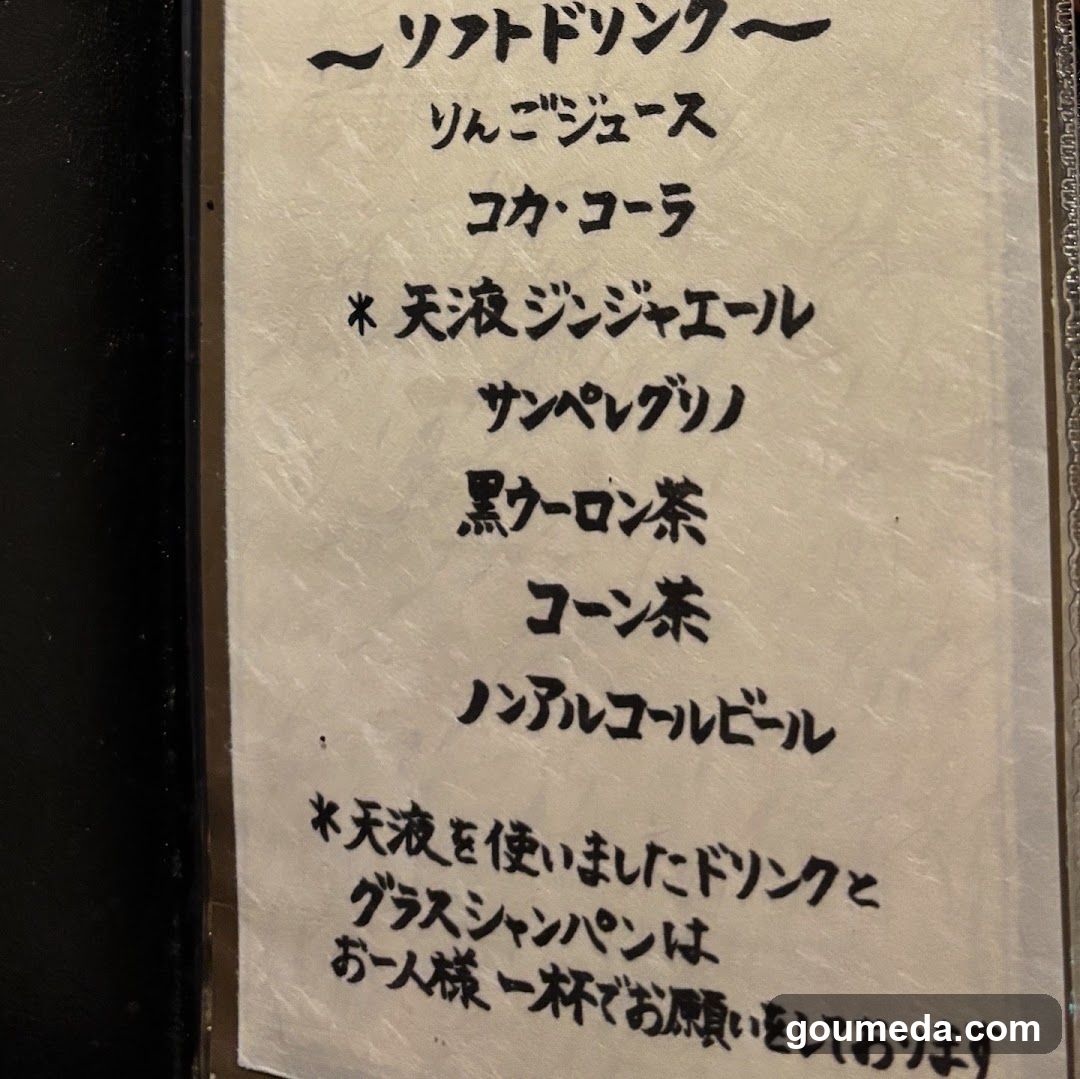 〜ソフトドリンク〜
りんごジュース
コカ・コーラ
* 天液ジンジャエール
サンペレグリノ
黒ウーロン茶
コーン茶
ノンアルコールビール
* 天液を使いましたドリンクと
グラスシャンパンは
お一人様 一杯でお願いをしております
goumeda.com